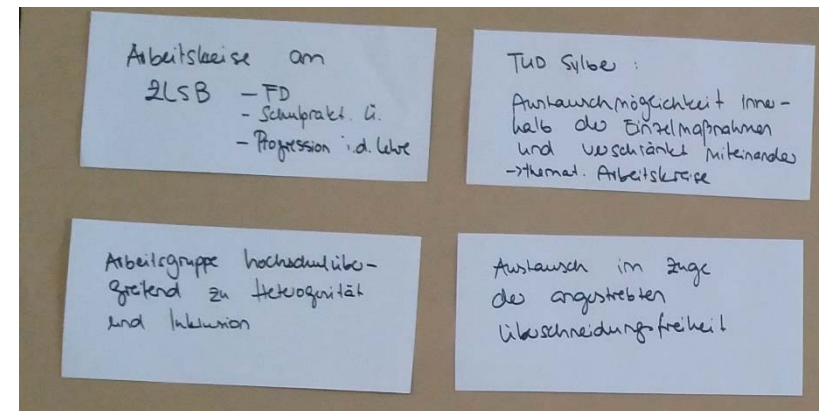 Arbeitskreise am
ZLSB – FD
- Schulprakt. Ü.
- Progression i.d. Lehre
TUD Sylber :
Austauschmöglichkeit inner-
halb der Einzelmaßnahmen
und verschränkt miteinander
-> themat. Arbeitskreise
Arbeitsgruppe hochschulüber-
greifend zu Heterogenität
und Inklusion
Austausch im Zuge
der angestrebten
Überschneidungsfreiheit